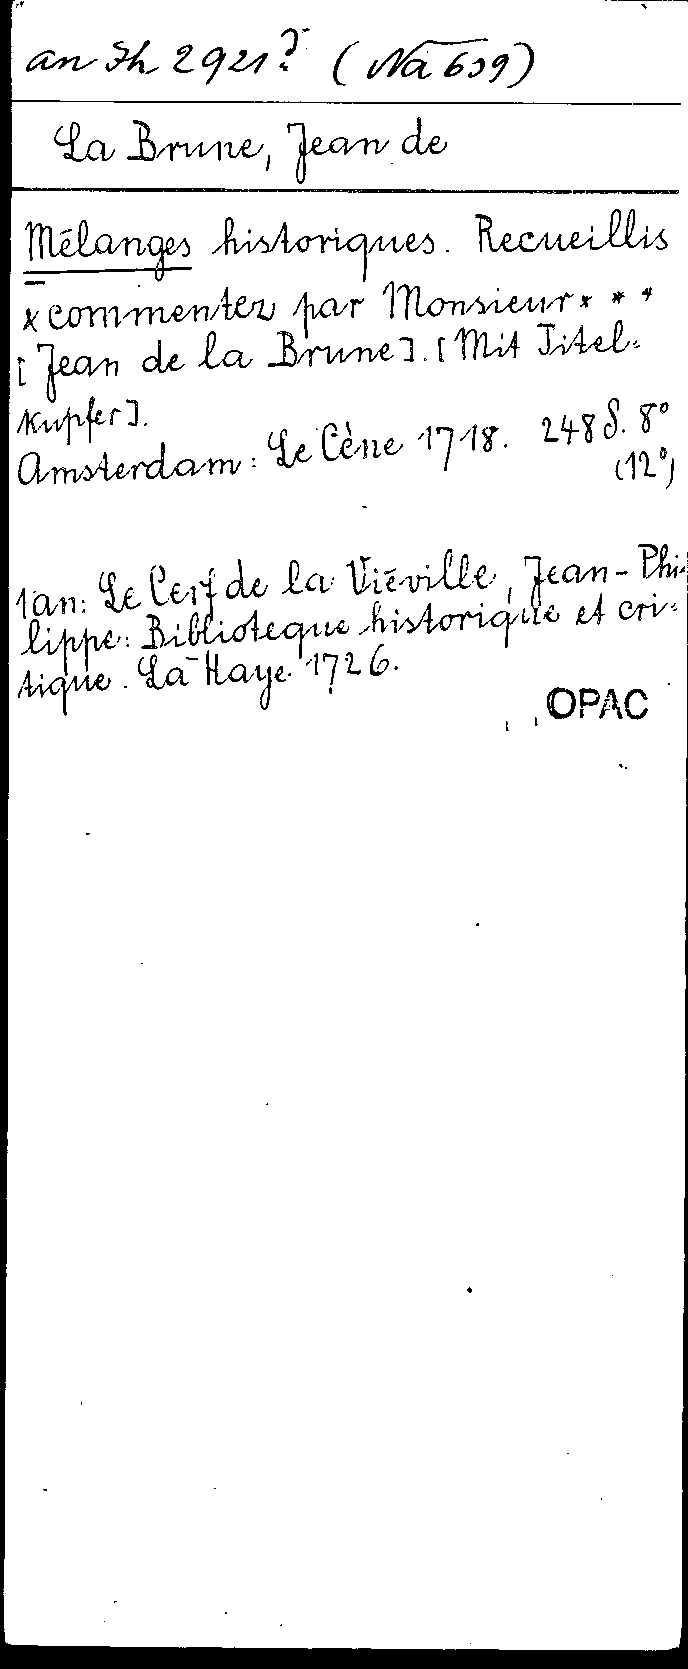 an Th 2921? (Na 639)
La Brune, Jean de
Mélanges historiques. Recueillis
x commentez par Monsieur * * *
[Jean de la Brune]. [Mit Titel-
kupfer].
Amsterdam: Le Cène 1718. 248 S. 8°
(12°)
1 an: Le Cerf de la Viéville, Jean-Phi-
lippe: Biblioteque historique et cri-
tique. La Haye 1726.
OPAC